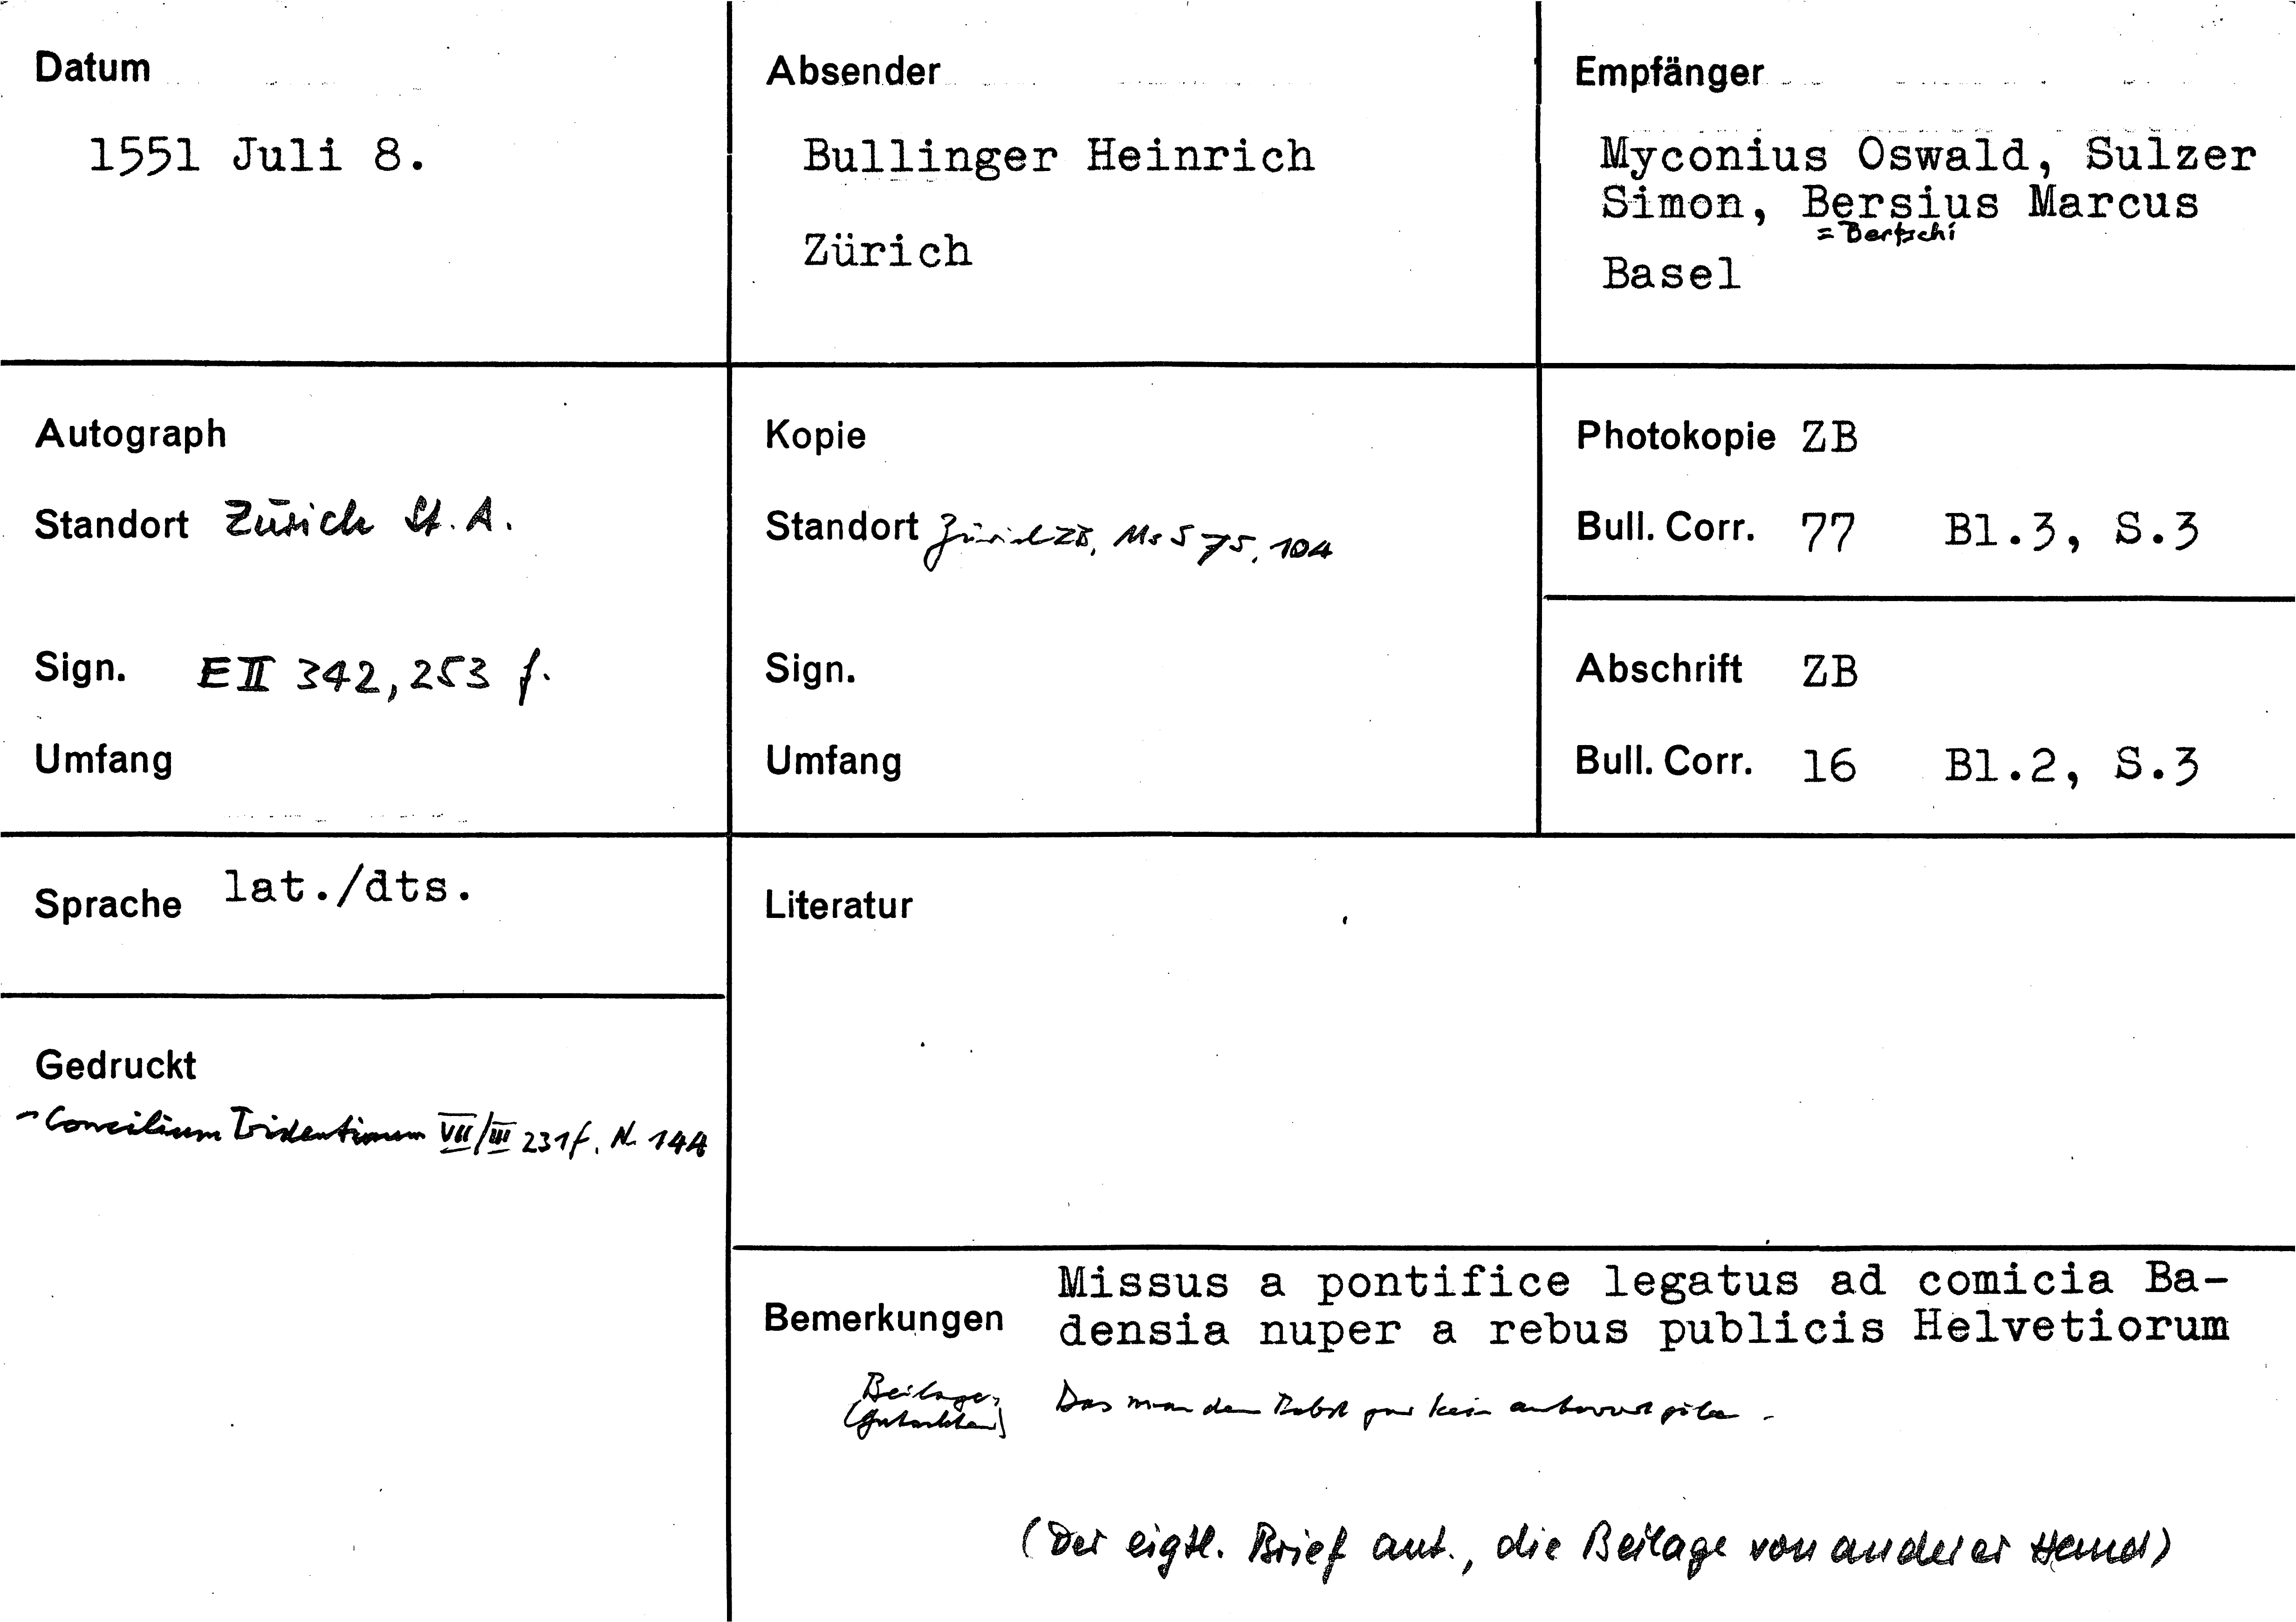 Datum
1551 Juli 8.
Absender
Bullinger Heinrich
Zürich
Empfänger
Myconius Oswald, Sulzer
Simon, Bersius Marcus
= Bertschi
Basel
Autograph
Standort Zürich St. A.
Sign. E II 342, 253 f.
Umfang
Kopie
Standort Zürich ZB, Ms S 75, 104
Sign.
Umfang
Photokopie ZB
Bull. Corr. 77 Bl.3, S.3
Abschrift ZB
Bull. Corr. 16 Bl.2, S.3
Sprache lat./dts.
Literatur
Gedruckt
- Concilium Tridentinum VII/III 231f. N. 144
Bemerkungen
Missus a pontifice legatus ad comicia Ba-
densia nuper a rebus publicis Helvetiorum
Beilage: Das man dem Babst gar kein antwort gibe -
(Gutachten)
(Der eigtl. Brief aut., die Beilage von anderer Hand)